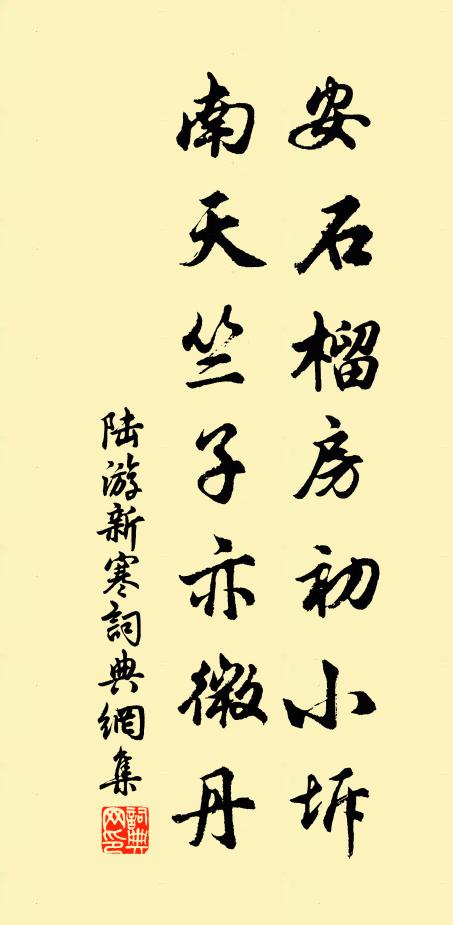 安石榴房初小坼
南天竺子亦微丹
陆游新寒詞典網集
詞典
网印